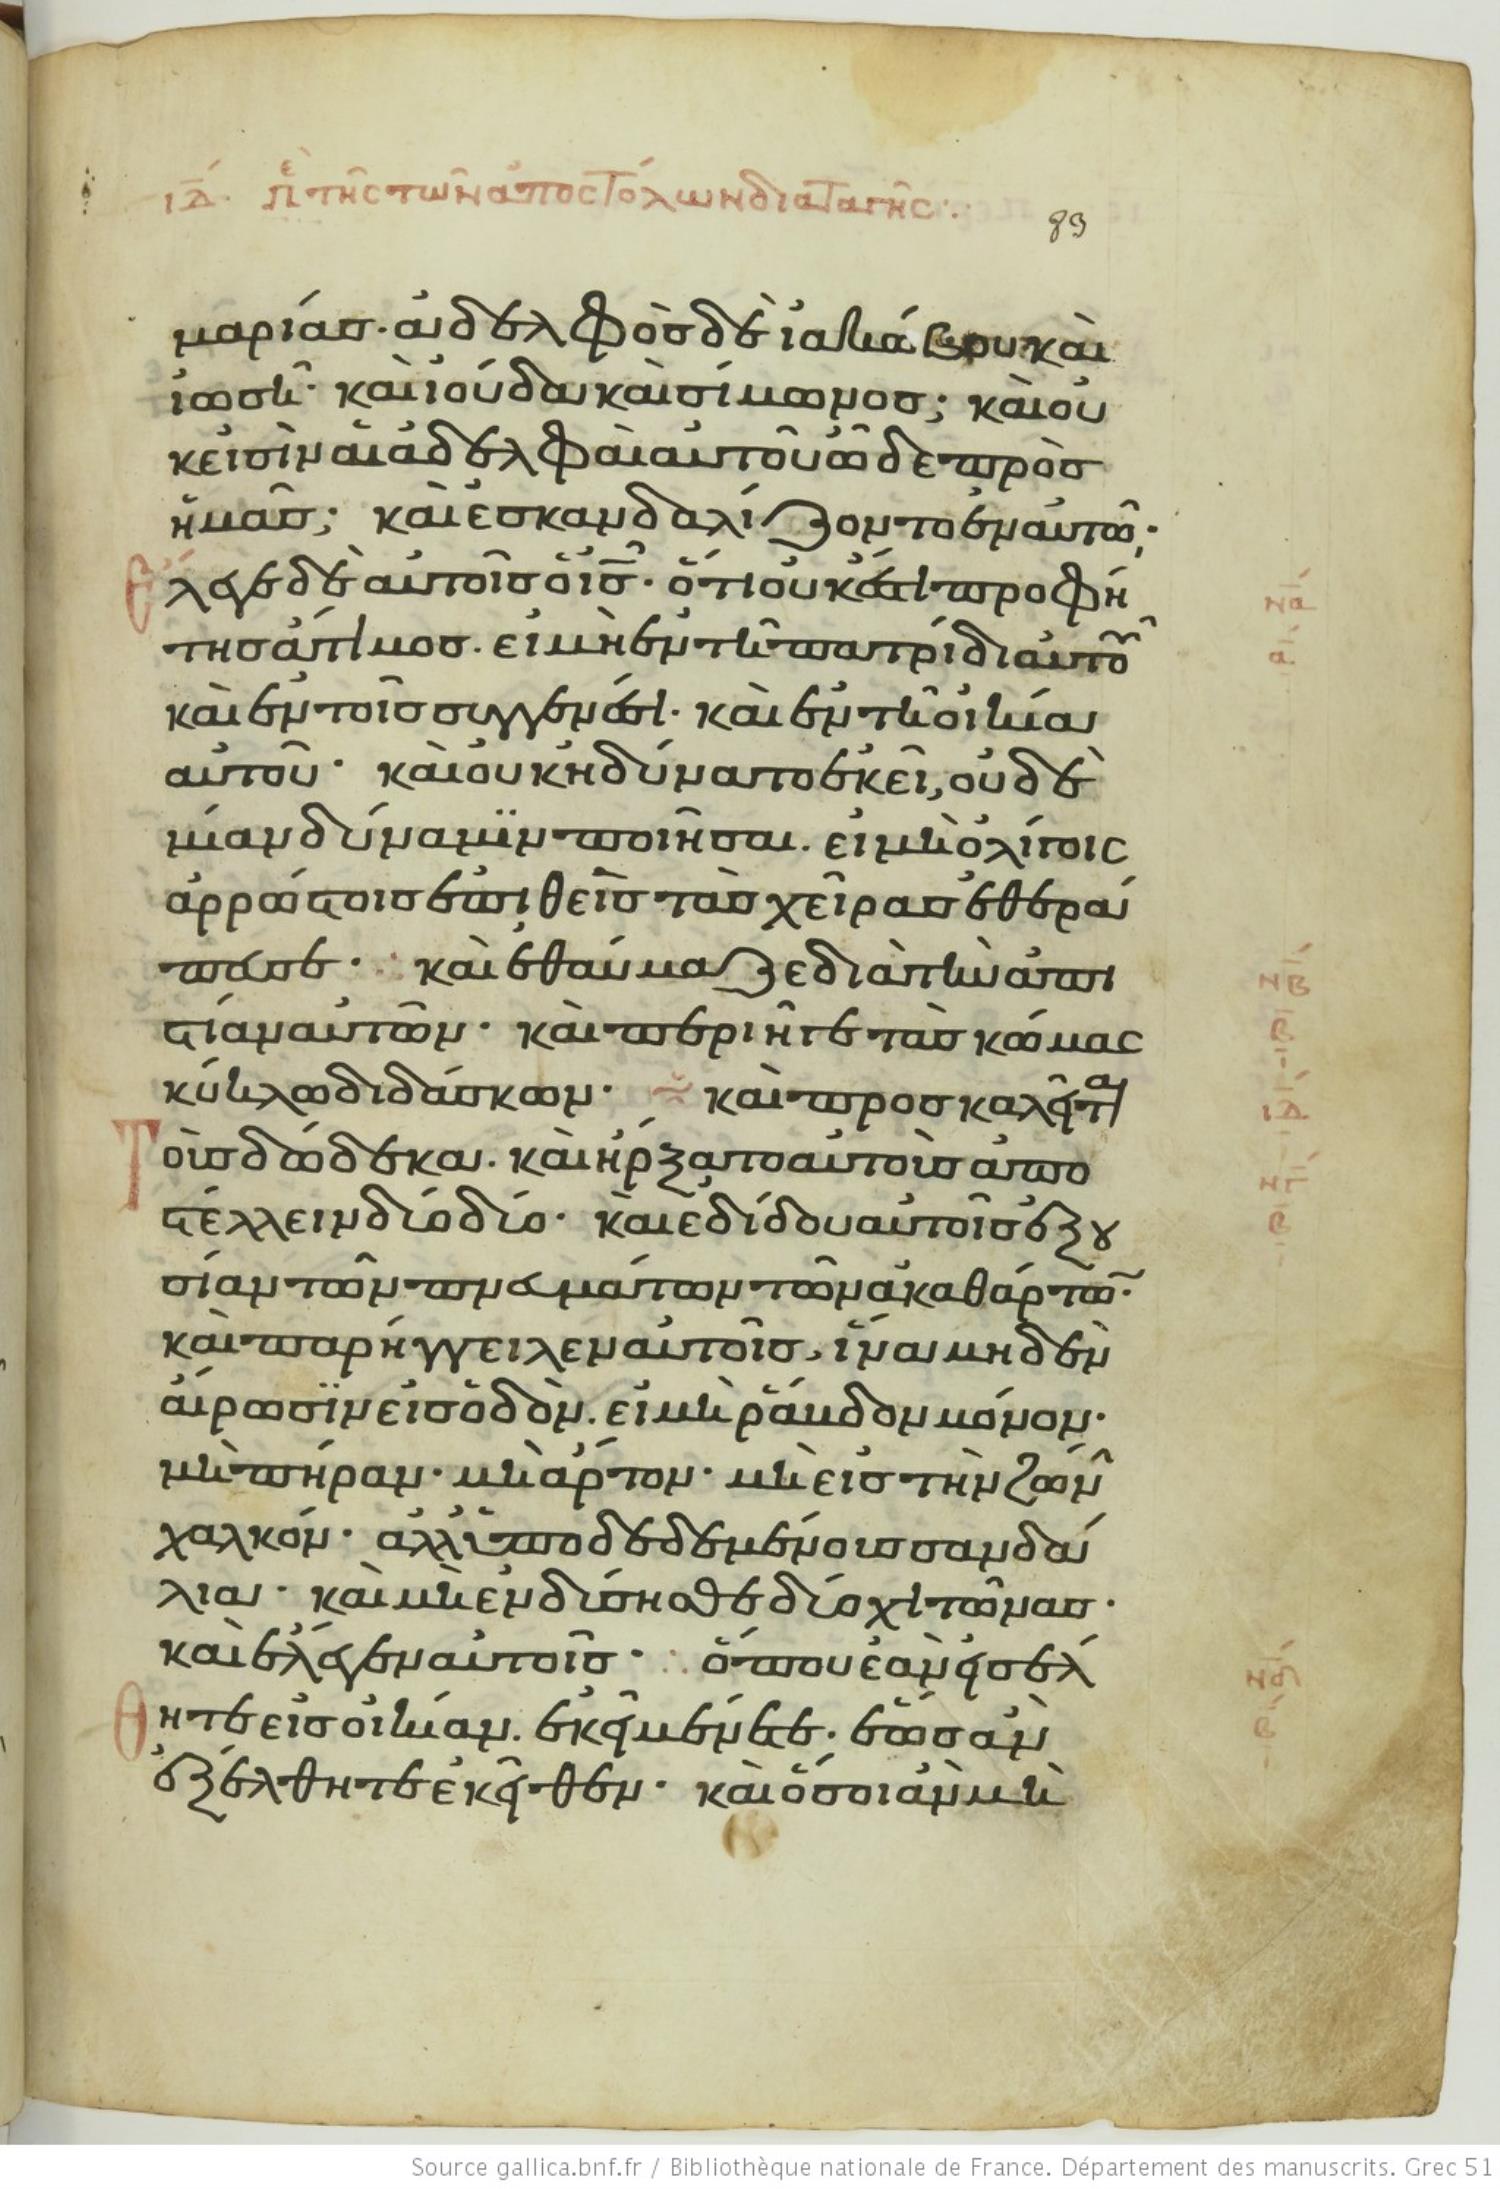 ιδ. πε της των αποστόλων διαταγης·.
89
μαρίας· ἀδελφὸς δὲ ἰακώβου καὶ
ἰωσῆ· καὶ ἰούδα καὶ σίμωνος; καὶ οὐ
κ εἰσὶν αἱ ἀδελφαὶ αὐτοῦ ὧδε πρὸς
ἡμᾶς; καὶ ἐσκανδαλίζοντο ἐν αὐτῶ·
ἔλεγε δὲ αὐτοῖς ὁ ις̅· ὅτι οὐκ ἔστι προφή
της ἄτιμος. εἰ μὴ ἐν τῆ πατρίδι αὐτοῦ
καὶ ἐν τοῖς συγγενέσι· καὶ ἐν τῆ οἰκία
αὐτοῦ· καὶ οὐκ ἠδύνατο ἐκεῖ, οὐδε
μίαν δύναμϊν ποιῆσαι. εἰ μὴ ὀλίγοις
ἀρρώστοις ἐπιθεὶς τὰς χεῖρας ἐθερά
πευσε· καὶ ἐθαύμαζε διὰ τὴν ἀπι
στίαν αὐτῶν· καὶ περιῆγε τὰς κώμας
κύκλω διδάσκων· καὶ προσκαλεῖται
Τοὺς δώδεκα. καὶ ἤρξατο αὐτοὺς ἀπο
στέλλειν δύο δύο· καὶ ἐδίδου αὐτοῖς ἐξου
σίαν τῶν πνευμάτων τῶν ἀκαθάρτων·
καὶ παρήγγειλεν αὐτοῖς, ἵνα μηδὲν
αἴρωσϊν εἰς ὁδὸν. εἰ μὴ ῥάβδον μόνον·
μὴ πήραν· μὴ ἄρτον· μὴ εἰς τὴν ζώνην
χαλκόν· ἀλλ' ὑποδεδεμένους σανδά
λια· καὶ μὴ ἐνδύσησθε δύο χιτῶνας·
καὶ ἔλεγεν αὐτοῖς· ὅπου ἐὰν εἰσέλ
θητε εἰς οἰκίαν. ἐκεῖ μένετε· ἕως ἂν
ἐξέλθητε ἐκεῖθεν· καὶ ὅσοι ἂν μὴ
να
α
νβ
β
ιδ
νγ
β
νδ
β
Source gallica.bnf.fr / Bibliothèque nationale de France. Département des manuscrits. Grec 51